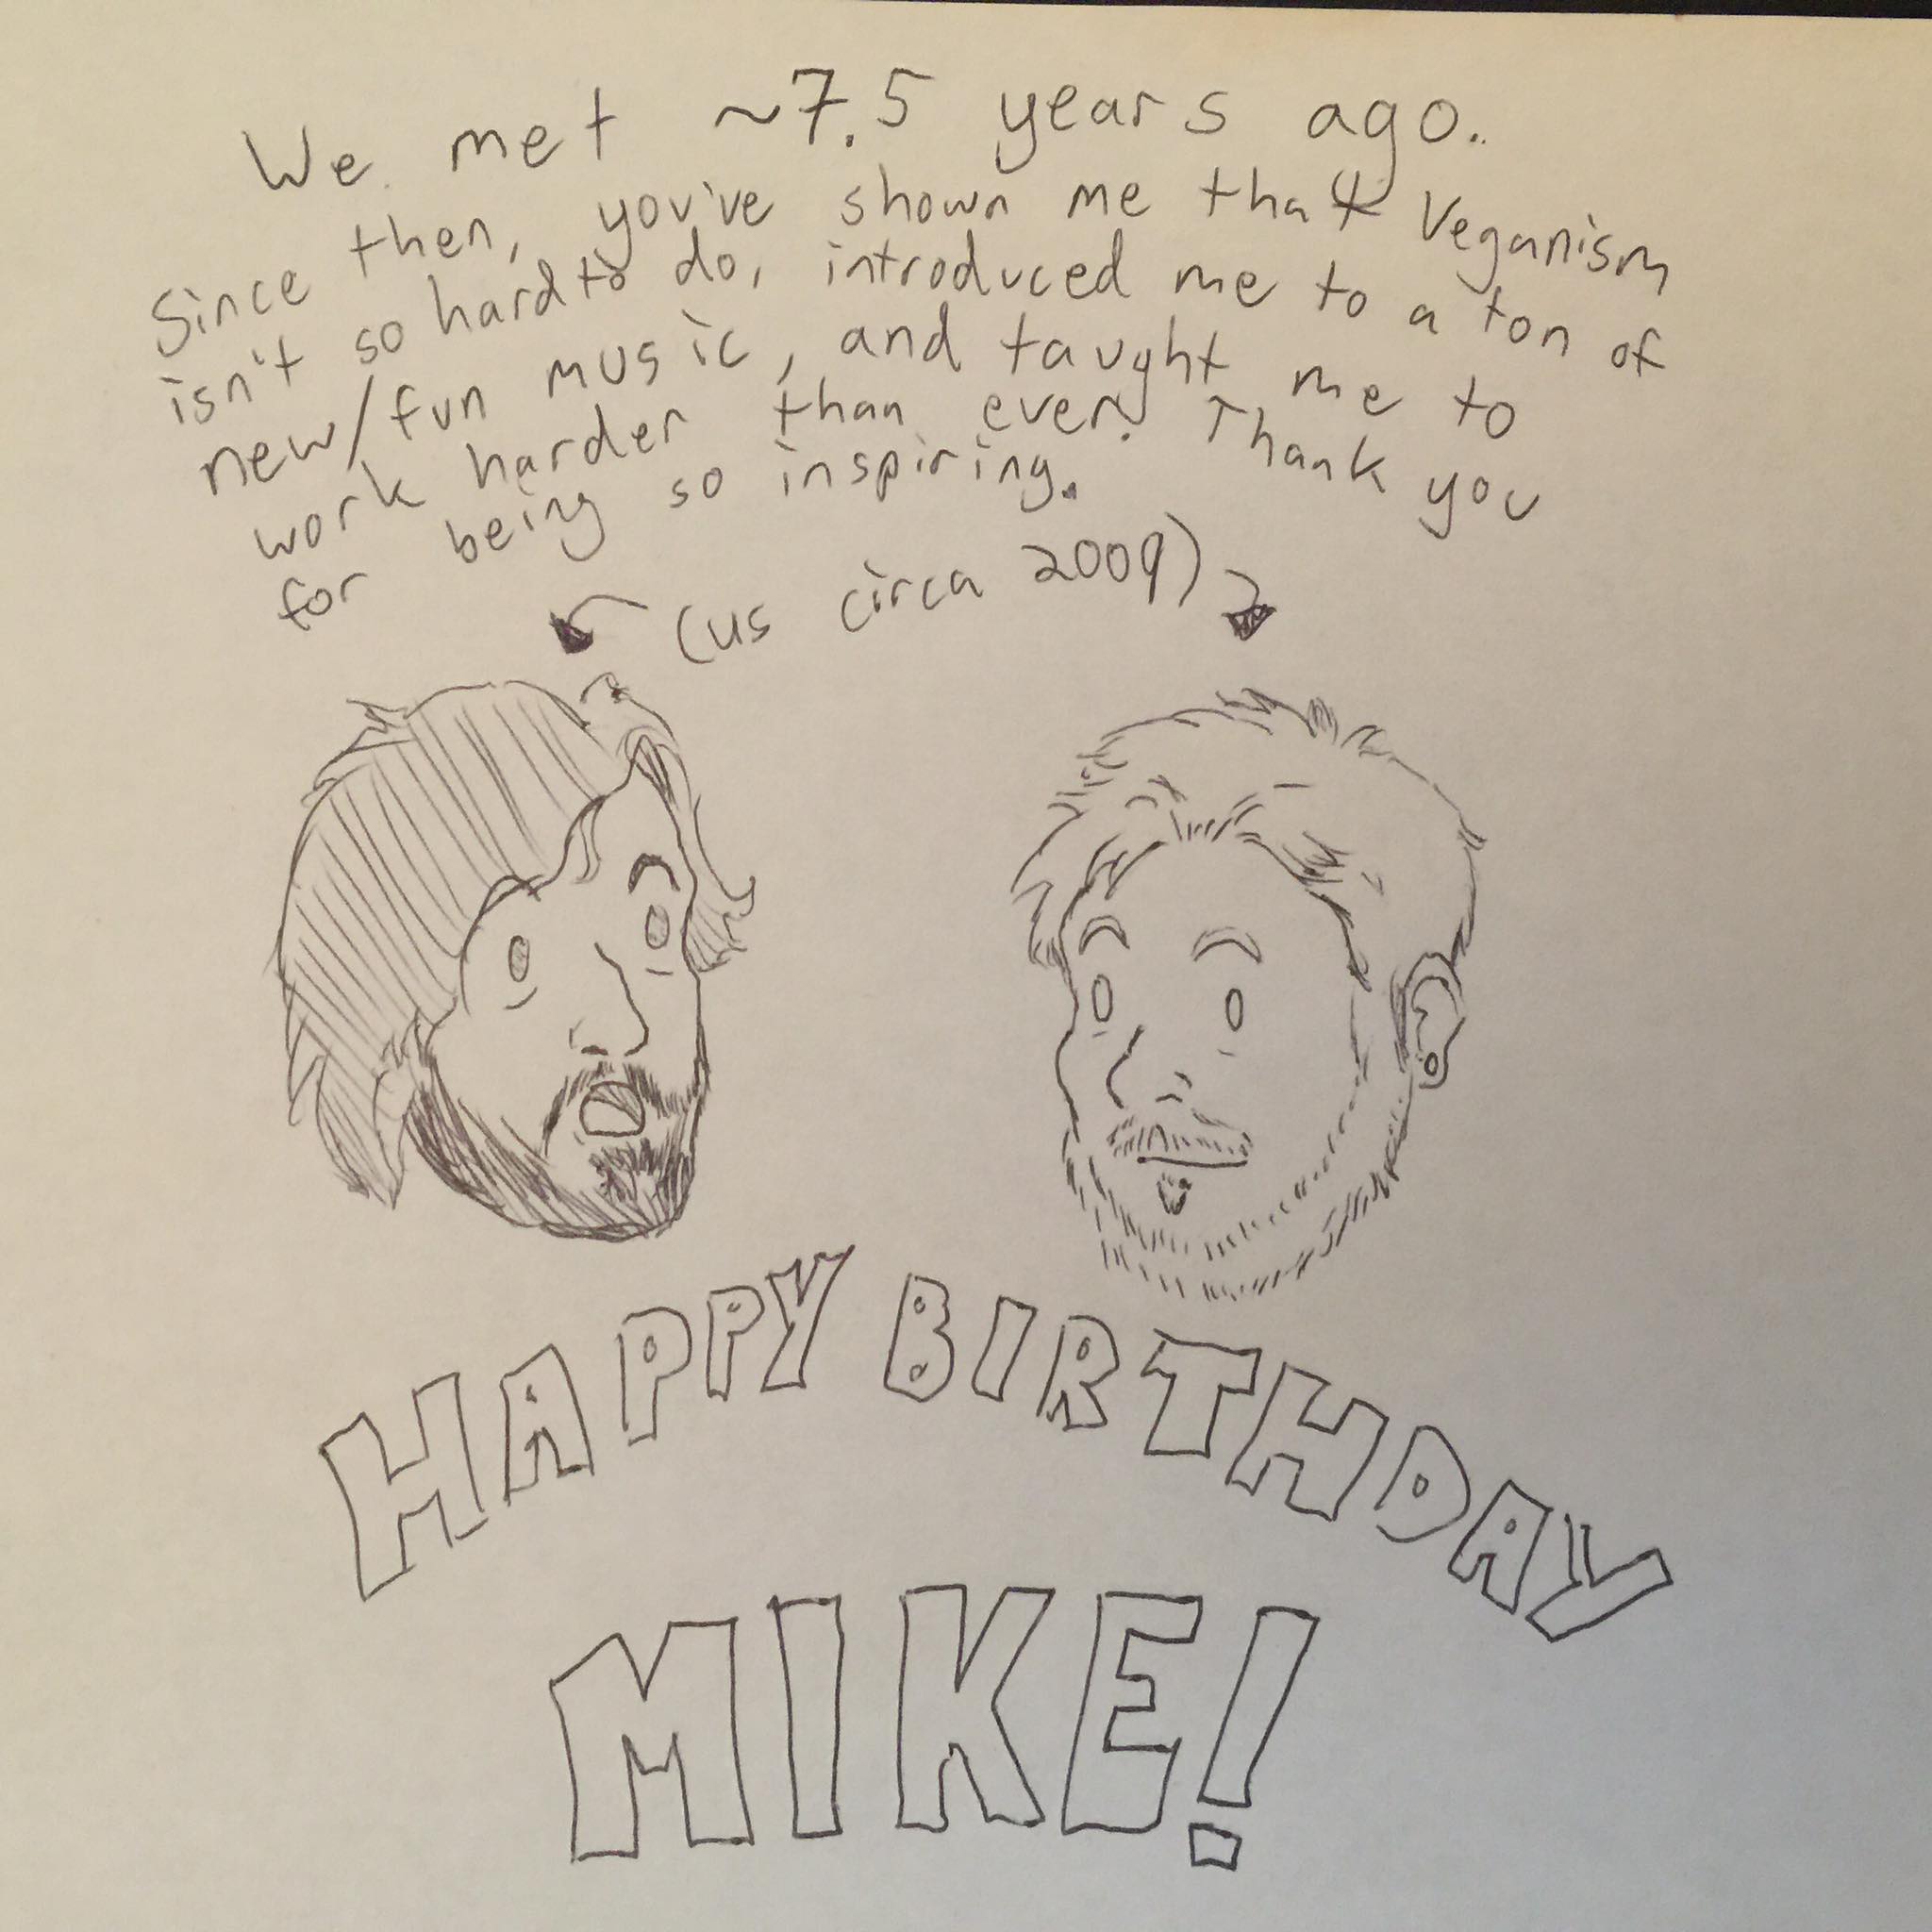 We met ~7.5 years ago.
Since then, you've shown me that Veganism
isn't so hard to do, introduced me to a ton of
new/fun music, and taught me to
work harder than ever. Thank you
for being so inspiring.
(us circa 2009)
HAPPY BIRTHDAY
MIKE!